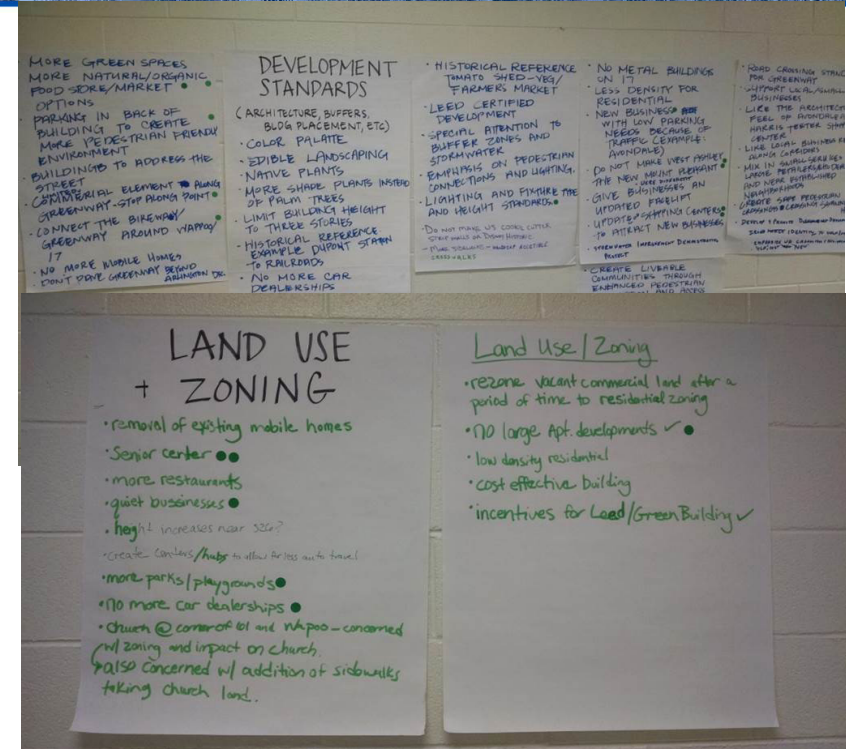 MORE GREEN SPACES
MORE NATURAL/ORGANIC
FOOD STORE/MARKET
OPTIONS
PARKING IN BACK OF
BUILDING TO CREATE
MORE PEDESTRIAN FRIENDLY
ENVIRONMENT
BUILDINGS TO ADDRESS THE
STREET
COMMERCIAL ELEMENT ALONG
GREENWAY - STOP ALONG POINT
• CONNECT THE BIKEWAY/
GREENWAY AROUND WAPPOO/
17
• NO MORE MOBILE HOMES
• DON'T PAVE GREENWAY BEYOND
ARLINGTON DR.
DEVELOPMENT
STANDARDS
(ARCHITECTURE, BUFFERS,
BLDG PLACEMENT, ETC)
• COLOR PALATE
• EDIBLE LANDSCAPING
• NATIVE PLANTS
• MORE SHADE PLANTS INSTEAD
OF PALM TREES
• LIMIT BUILDING HEIGHT
TO THREE STORIES
• HISTORICAL REFERENCE
EXAMPLE DUPONT STATION
TO RAILROADS
• NO MORE CAR
DEALERSHIPS
• HISTORICAL REFERENCE
TOMATO SHED-VEG/
FARMERS MARKET
• LEED CERTIFIED
DEVELOPMENT
• SPECIAL ATTENTION TO
BUFFER ZONES AND
STORMWATER
• EMPHASIS ON PEDESTRIAN
CONNECTIONS AND LIGHTING.
• LIGHTING AND FIXTURE TYPE
AND HEIGHT STANDARDS.
• DO NOT MAKE US COOKIE CUTTER
STRIP MALLS OR
CROSSWALKS
• NO METAL BUILDINGS
ON 17
• LESS DENSITY FOR
RESIDENTIAL
• NEW BUSINESS
WITH LOW PARKING
NEEDS BECAUSE OF
TRAFFIC (EXAMPLE:
AVONDALE)
• DO NOT MAKE WEST ASHLEY
THE NEW MOUNT PLEASANT
• GIVE BUSINESSES AN
UPDATED FACELIFT
• UPDATE SHOPPING CENTERS
TO ATTRACT NEW BUSINESSES
• CREATE LIVEABLE
COMMUNITIES THROUGH
ENHANCED PEDESTRIAN
AND ACCESS
• ROAD CROSSING
FOR GREENWAY
• SUPPORT LOCAL/SMALL
BUSINESSES
• LIKE THE
FEEL OF AVONDALE
HARRIS TEETER
CENTER
• LIKE LOCAL BUSINESS
ALONG CORRIDORS
• MIX IN
LARGE
AND NEAR ESTABLISHED
NEIGHBORHOODS
• CREATE SAFE PEDESTRIAN
LAND USE
+ ZONING
• removal of existing mobile homes
• Senior center
• more restaurants
• quiet bussinesses
• height increases near 526?
• create centers/hubs to allow for less auto travel
• more parks/playgrounds
• no more car dealerships
• Church @ corner of 61 and Wappoo - concerned
w/ zoning and impact on church.
also concerned w/ addition of sidewalks
taking church land.
Land Use/Zoning
• rezone vacant commercial land after a
period of time to residential zoning
• no large Apt. developments ✓
• low density residential
• cost effective building
• incentives for Leed/Green Building ✓